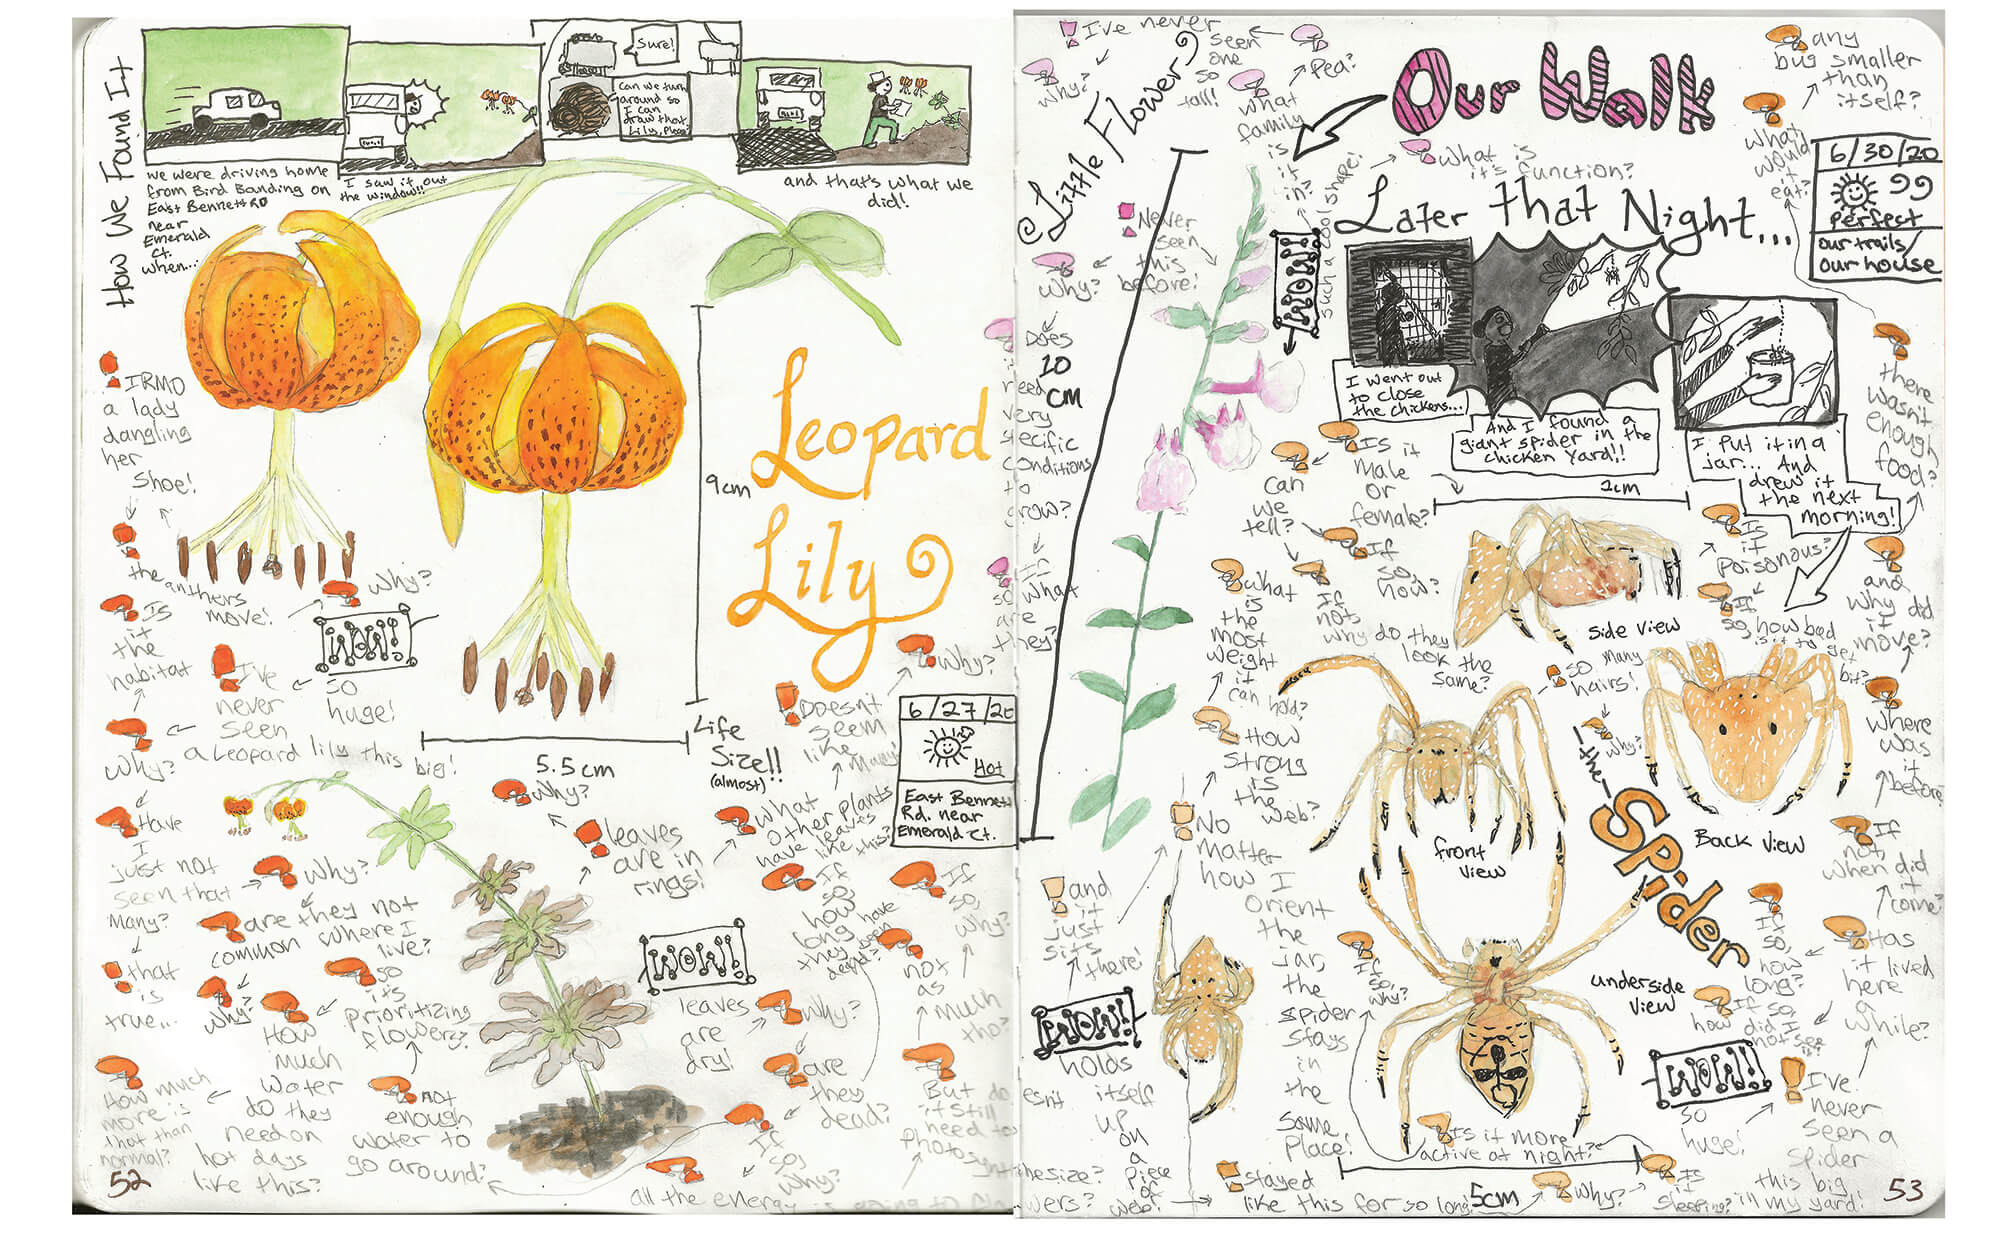 How We Found It
we were driving home
from Bird Banding on
East Bennett RD
near
Emerald
ct.
when...
I saw it out
the window!!
Sure!
Can we turn
around so
I can
draw that
Lily, Please?
and that's what we
did!
Leopard
Lily
9cm
5.5cm
Life
Size!!
(almost)
6/27/20
Hot
East Bennett
Rd. near
Emerald Ct.
IRMO
a lady
dangling
her
Shoe!
the anthers
move!
Why?
Is
it
the
habitat
WOW!!
so
huge!
I've
never
seen
a Leopard lily this big!
Why?
Have
I
just not
seen that
Many?
that
is
true...
Why?
are they not
common where I
live?
Why?
How
much
water
do they
need on
hot days
like this?
How much
more is
that than
normal?
so
it's
prioritizing
flowers?
not
enough
water to
go around?
Why?
leaves
are in
rings!
What
other plants
have leaves
like this?
Doesn't
seem
like
many!
Why?
WOW!!
leaves
are
dry!
Why?
are
they
dead?
If
so,
how
long
have
they been
dead?
If
so,
why?
all the energy
not
as
much
tho?
If
so,
why?
But do
it still
need to
52
I've never
seen
one
so
tall!
Why?
Pea?
what
family
is
it
in?
Little Flower
Never
seen
this
before!
Why?
Does
need
very
specific
conditions
to
grow?
10
cm
so what
are
they?
WOW!!
such a cool shape!
What is
it's function?
Our Walk
Later that Night...
I went out
to close
the chickens...
And I found a
giant spider in the
chicken yard!!
I put it in a
jar... And
drew it
the next
morning!
6/30/20
99
Perfect
our trails/
our house
any
bug smaller
than
itself?
What
would
it
eat?
there
wasn't
enough
food?
and
why did
it
move?
Where
was
it
before?
If
not,
when did
it
come?
Has
it lived
here
a
while?
If
so,
how
long?
If so,
how did I
not see
it?
WOW!!
so
huge!
I've
never
seen a
spider
this big
in my yard!
Is it
Male
or
female?
Can
we
tell?
If
so,
how?
If
not,
why do they
look the
same?
2cm
side view
Is
it
Poisonous?
If
so, how bad
is it to get
bit?
so many
hairs!
Why?
the
Spider
front
view
Back view
underside
view
5cm
what
is
the
most
weight
it
can hold?
How
strong
is
the
web?
No
matter
how I
orient
the
jar,
the
spider
stays
in
the
same
place!
and
it
just
sits
there!
WOW!!
holds
itself
up
on
a
piece
of
web!
If
so,
why?
Is it more
active at night?
stayed
like this for so long!
Why?
Is
it
sleeping?
53